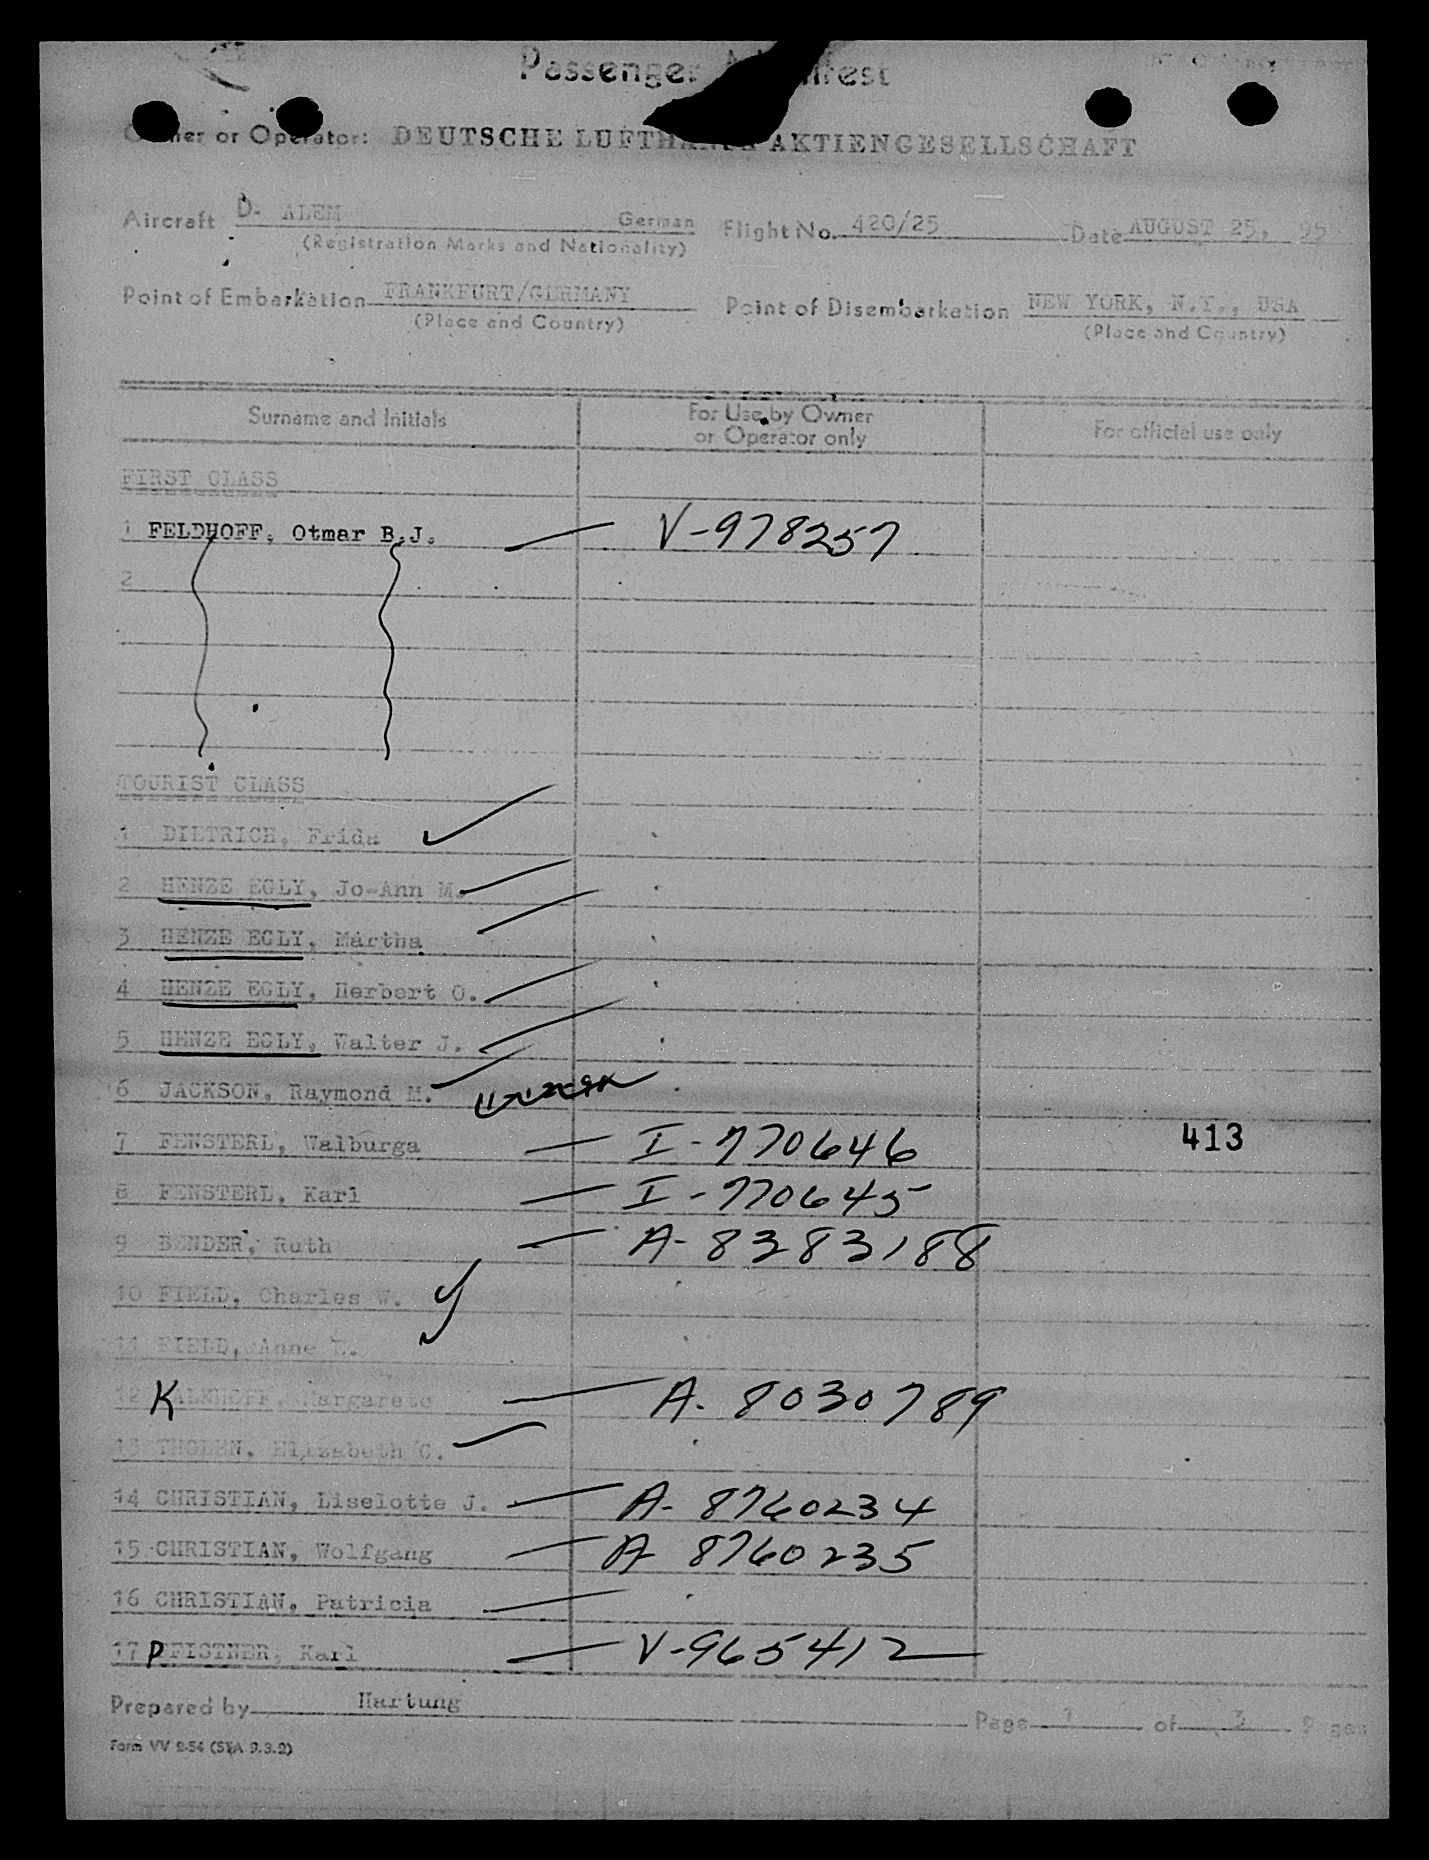 Passenger
Owner or Operator: DEUTSCHE LUFTHANSA AKTIENGESELLSCHAFT
Aircraft D- ALEM German Flight No. 420/25 Date AUGUST 25, 95
(Registration Marks and Nationality)
Point of Embarkation FRANKFURT/GERMANY Point of Disembarkation NEW YORK, N.Y., USA
(Place and Country) (Place and Country)
Surname and Initials For Use by Owner or Operator only For official use only
FIRST CLASS
1 FELDHOFF, Otmar B.J. V-978257
2
TOURIST CLASS
1 DIETRICH, Frida
2 HENZE EGLY, Jo-Ann M.
3 HENZE EGLY, Martha
4 HENZE EGLY, Herbert O.
5 HENZE EGLY, Walter J.
6 JACKSON, Raymond M.
7 FENSTERL, Walburga I-770646 413
8 FENSTERL, Karl I-770645
9 BENDER, Ruth A-8383188
10 FIELD, Charles W.
11 FIELD, Anne L.
12 KALKHOFF, Margarete A-8030789
13 THOLEN, Elizabeth C.
14 CHRISTIAN, Liselotte J. A-8760234
15 CHRISTIAN, Wolfgang A 8760235
16 CHRISTIAN, Patricia
17 PFISTNER, Karl V-965412
Prepared by Hartung Page 1 of 3 Pages
Form VV 2-54 (STA 9.3.2)